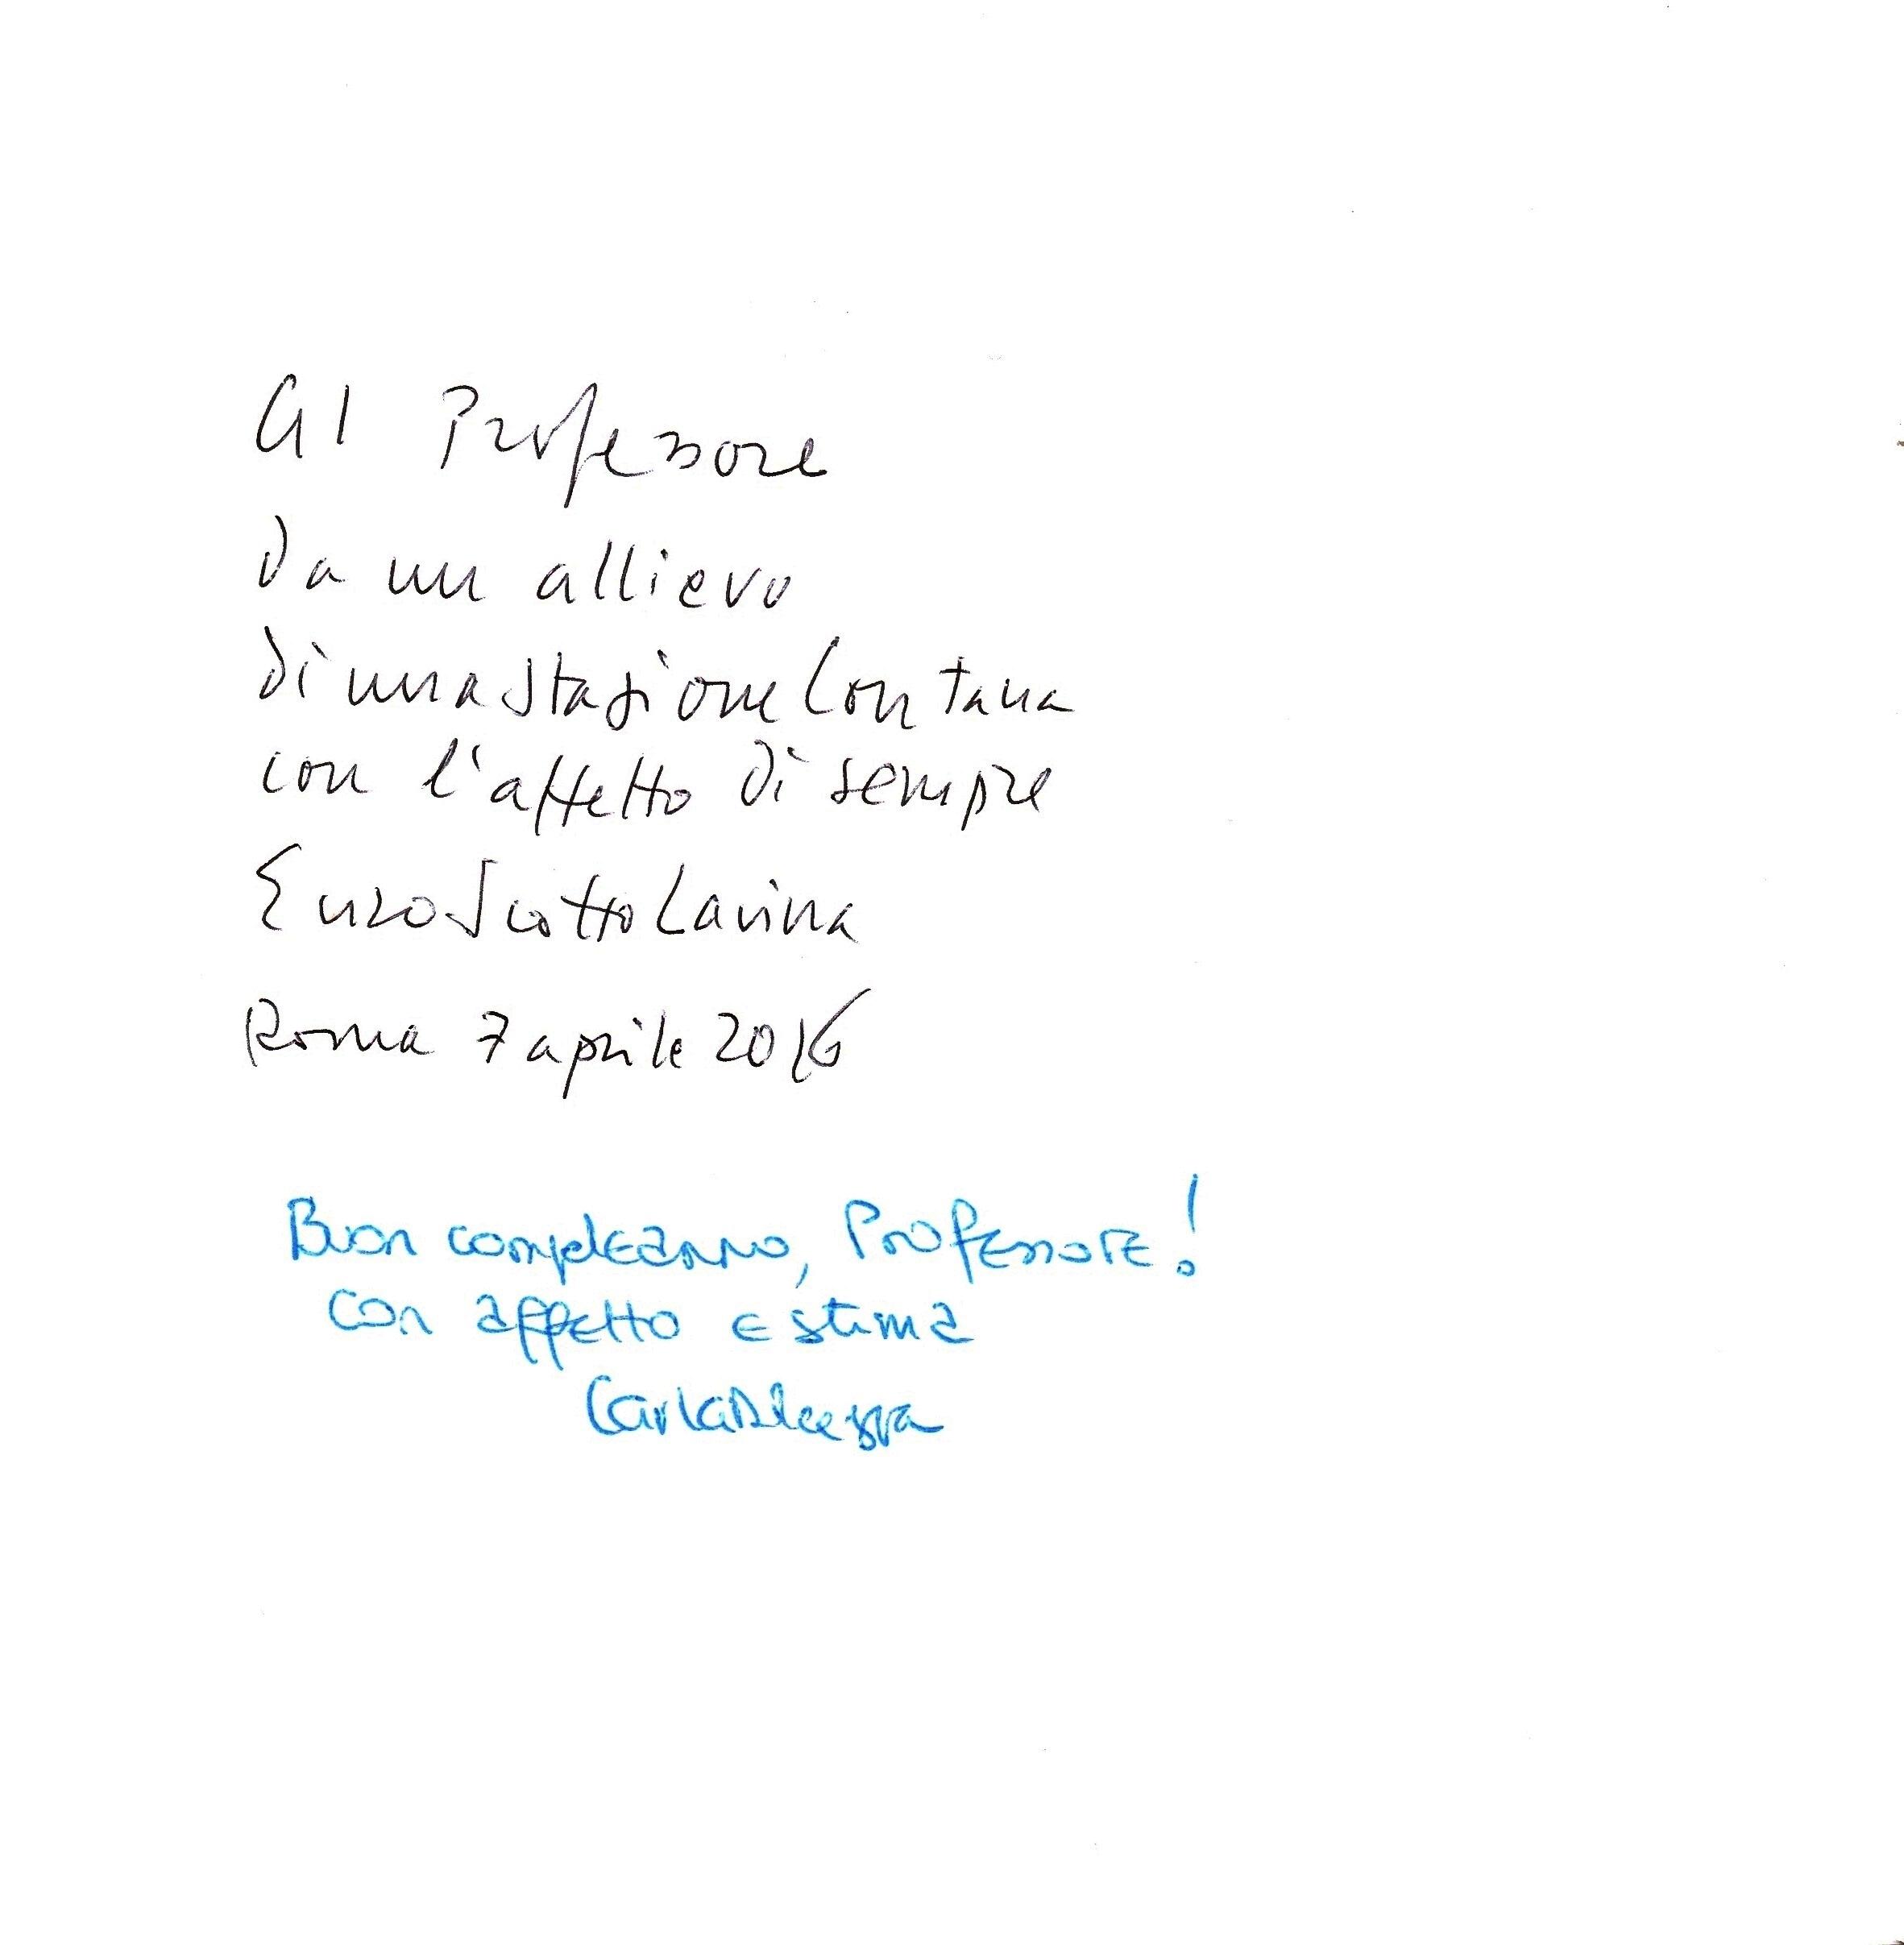 Al Professore
da un allievo
di una stagione lontana
con l'affetto di sempre
Enzo Scotto Lavina
Roma 7 aprile 2016
Buon compleanno, Professore!
con affetto e stima